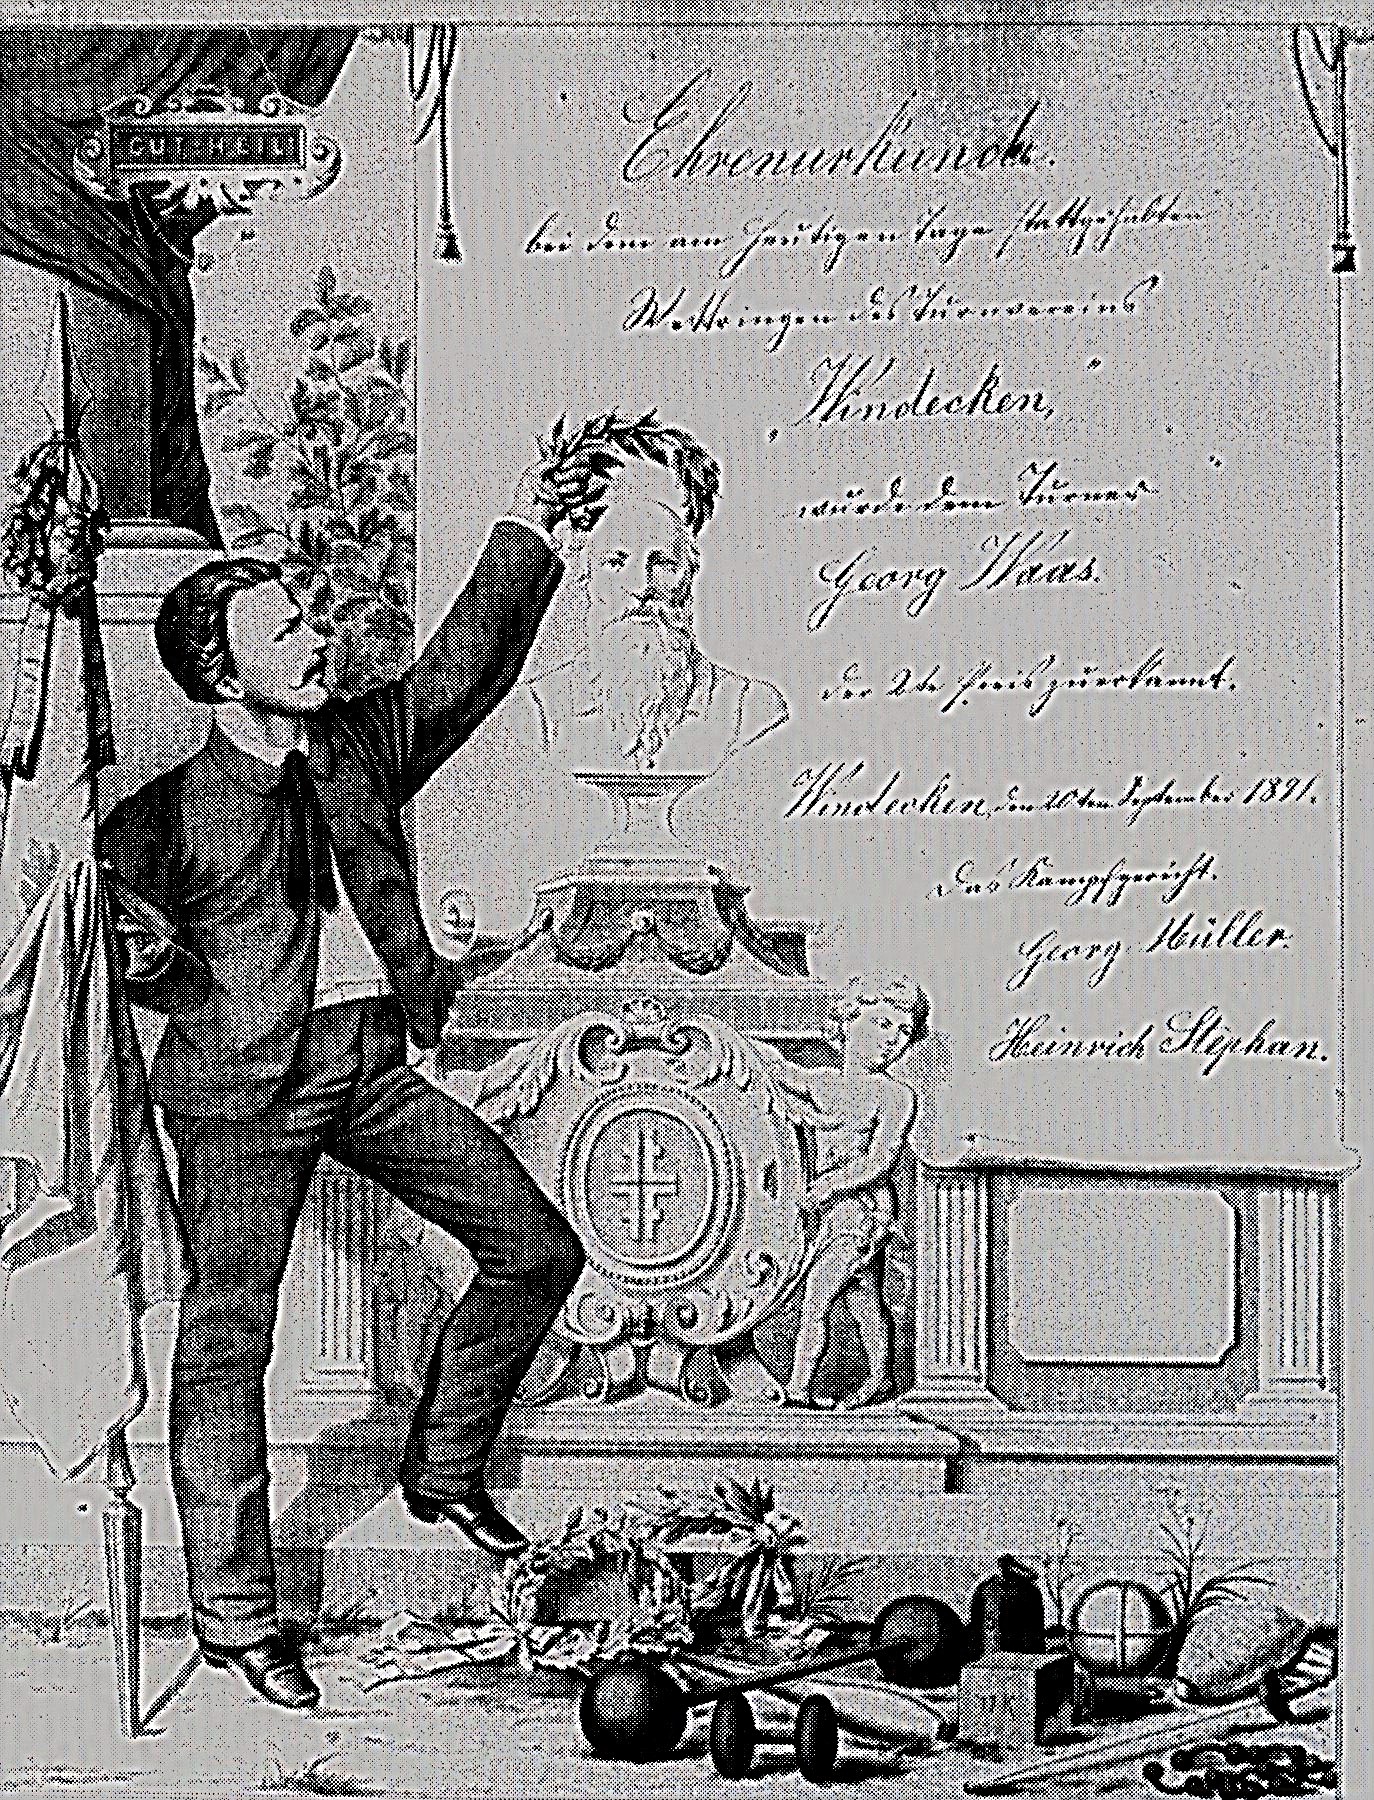 GUT HEIL!
Ehrenurkunde.
bei dem am heutigen Tage stattgehabten
Wettringen des Turnvereins
„Windecken,"
wurde dem Turner
Georg Haas.
der 2te Preis zuerkannt.
Windecken, den 20ten September 1891.
Das Kampfgericht.
Georg Müller.
Heinrich Stephan.